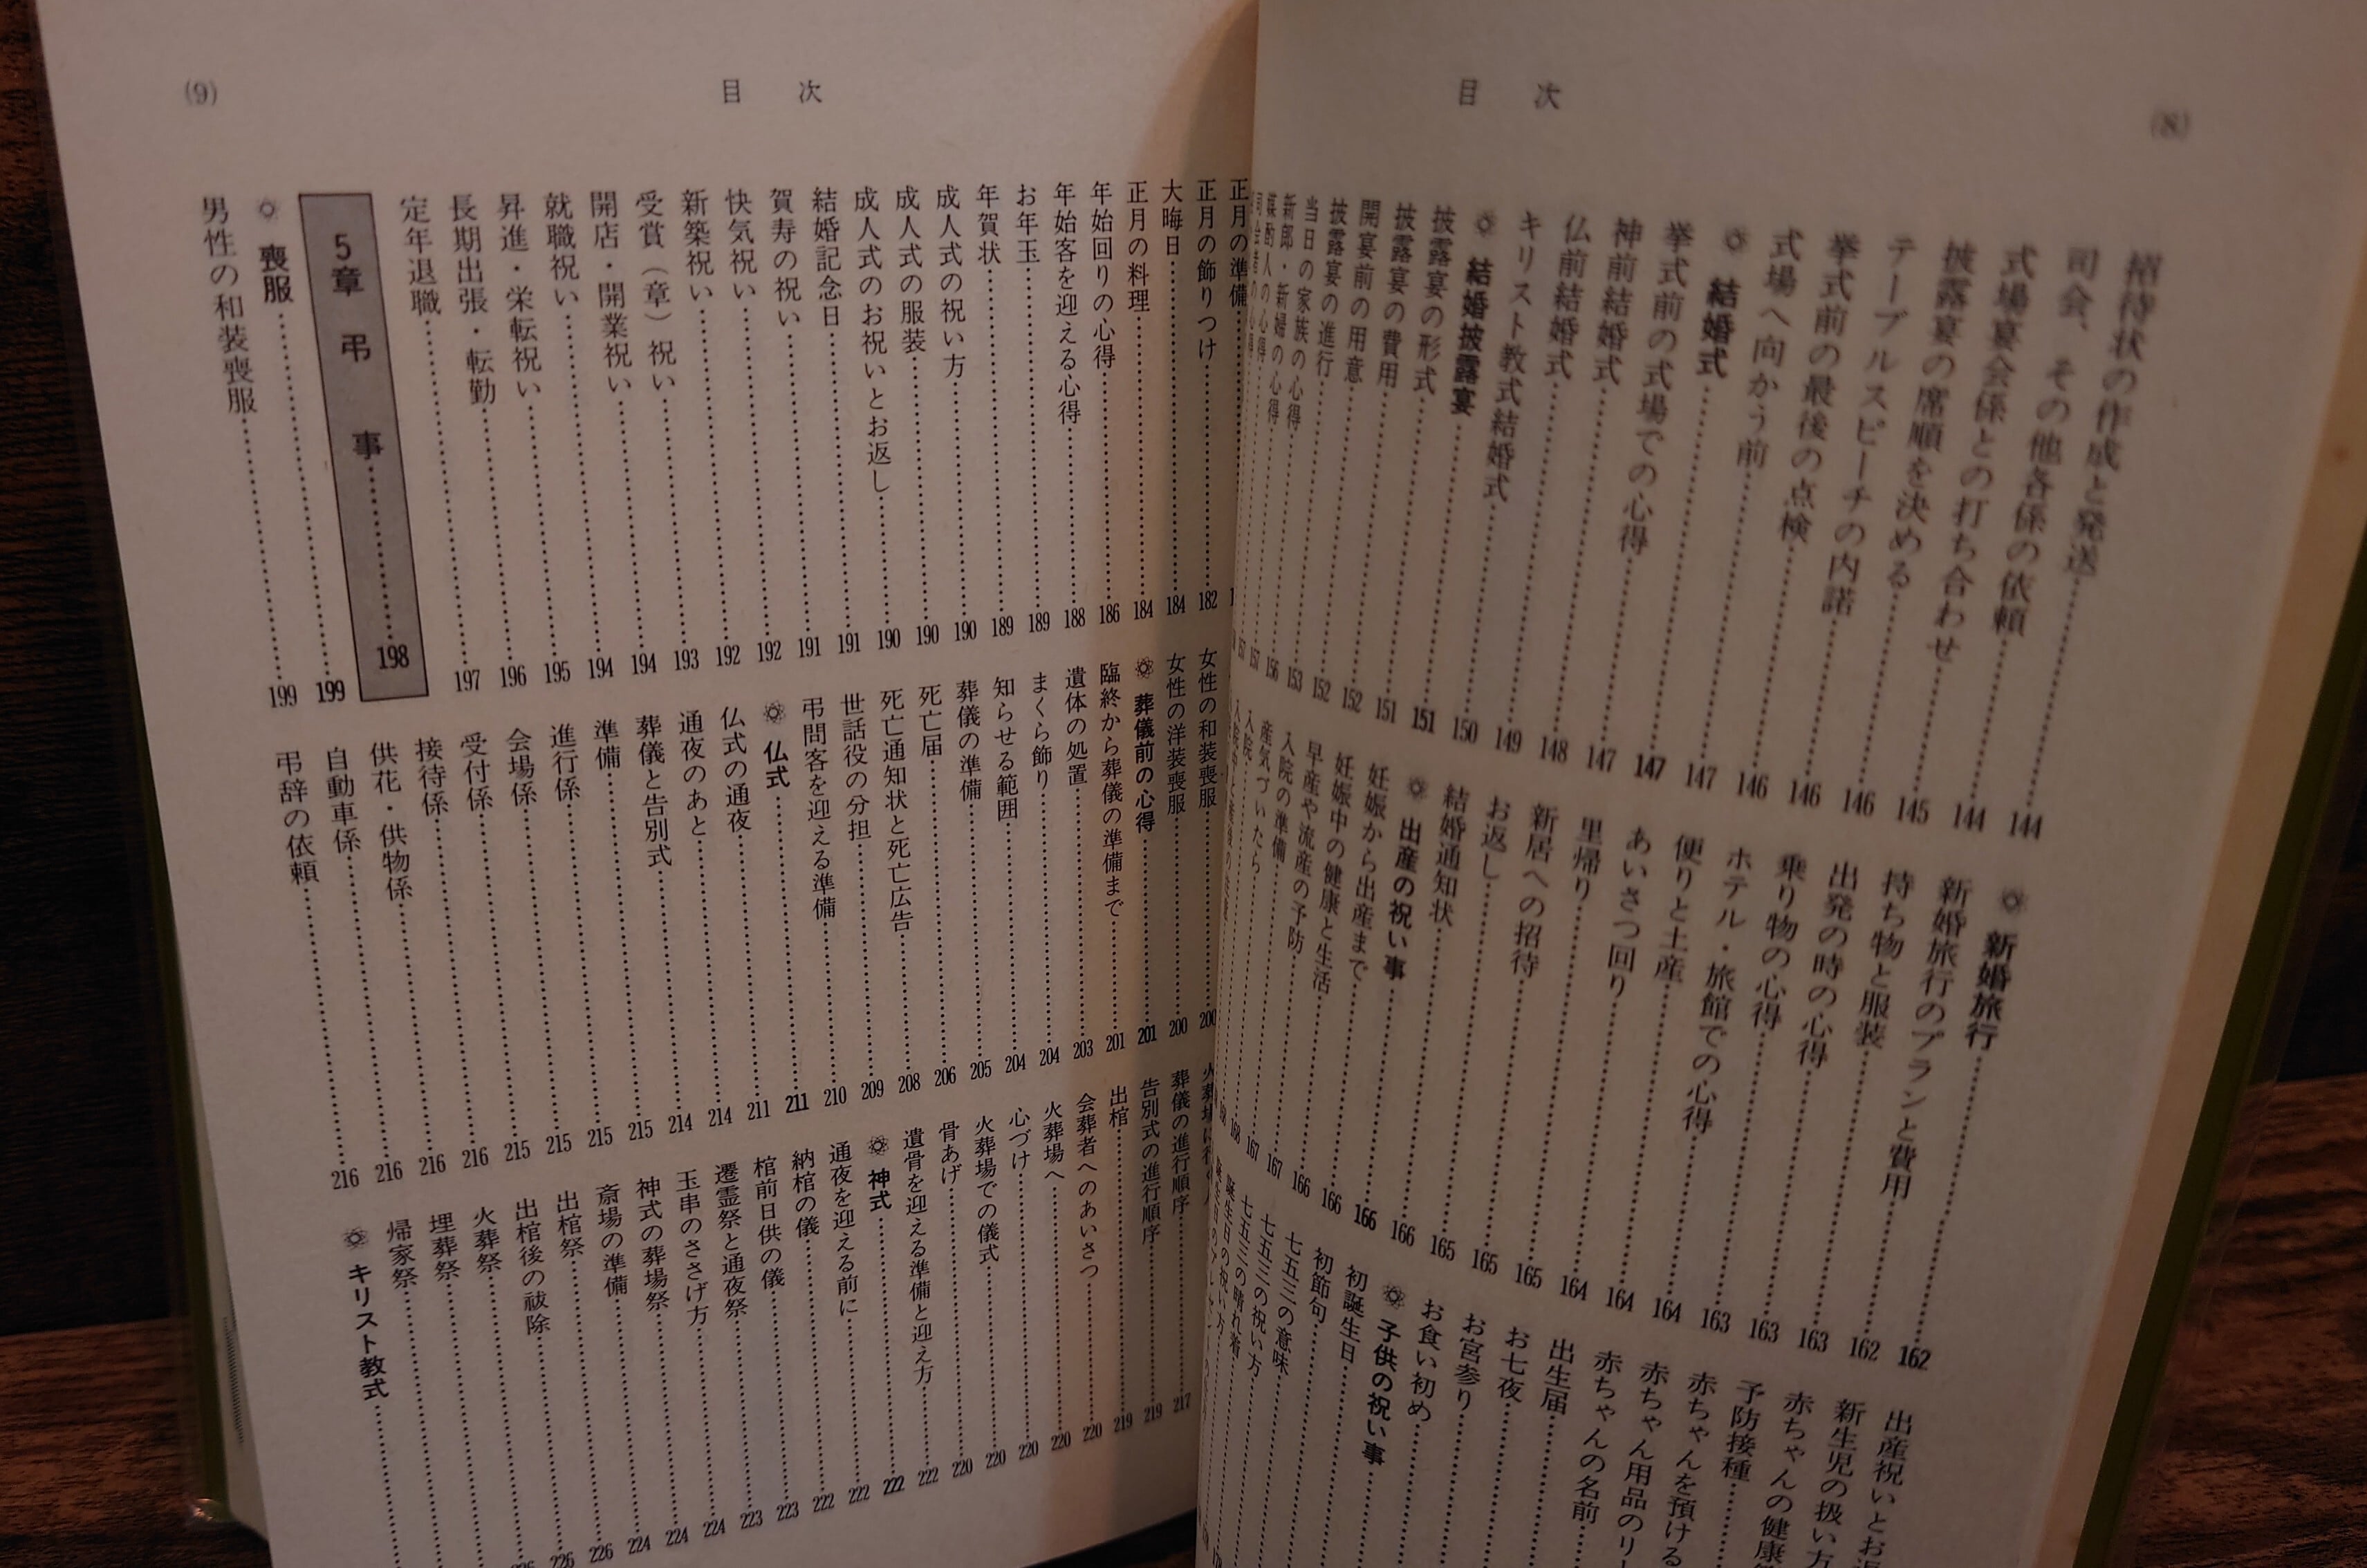 (8)
目次
招待状の作成と発送……144
司会、その他各係の依頼……144
式場宴会係との打ち合わせ……145
披露宴の席順を決める……146
テーブルスピーチの内諾……146
挙式前の最後の点検……146
式場へ向かう前……147
結婚式……147
挙式前の式場での心得……147
神前結婚式……148
仏前結婚式……149
キリスト教式結婚式……150
結婚披露宴……151
披露宴の形式……151
披露宴の費用……152
開宴前の用意……152
披露宴の進行……153
当日の家族の心得……156
新郎・新婦の心得……157
媒酌人の心得……157
新婚旅行……162
新婚旅行のプランと費用……162
持ち物と服装……163
出発の時の心得……163
乗り物の心得……163
ホテル・旅館での心得……164
便りと土産……164
あいさつ回り……164
里帰り……165
新居への招待……165
お返し……165
結婚通知状……166
出産の祝い事……166
妊娠から出産まで……166
妊娠中の健康と生活……166
早産や流産の予防……167
入院の準備……167
産気づいたら……168
入院
出産祝いとお返
新生児の扱い方
赤ちゃんの健康
予防接種
赤ちゃんを預ける
赤ちゃん用品のリ
赤ちゃんの名前
出生届
お七夜
お宮参り
お食い初め
子供の祝い事
初誕生日
初節句
七五三の意味
七五三の祝い方
七五三の晴れ着
誕生日の祝い方
(9)
目次
正月の準備
正月の飾りつけ……182
大晦日……184
正月の料理……184
年始回りの心得……186
年始客を迎える心得……188
お年玉……189
年賀状……189
成人式の祝い方……190
成人式の服装……190
成人式のお祝いとお返し……190
結婚記念日……191
賀寿の祝い……191
快気祝い……192
新築祝い……192
受賞(章)祝い……193
開店・開業祝い……194
就職祝い……194
昇進・栄転祝い……195
長期出張・転勤……196
定年退職……197
5章 弔事……198
喪服……199
男性の和装喪服……199
女性の和装喪服……200
女性の洋装喪服……200
葬儀前の心得……201
臨終から葬儀の準備まで……201
遺体の処置……203
まくら飾り……204
知らせる範囲……204
葬儀の準備……205
死亡届……206
死亡通知状と死亡広告……208
世話役の分担……209
弔問客を迎える準備……210
仏式……211
仏式の通夜……211
通夜のあと……214
葬儀と告別式……214
準備……215
進行係……215
会場係……215
受付係……215
接待係……216
供花・供物係……216
自動車係……216
弔辞の依頼……216
葬儀の進行順序……217
告別式の進行順序……219
出棺……219
会葬者へのあいさつ……220
火葬場へ……220
心づけ……220
火葬場での儀式……220
骨あげ……220
遺骨を迎える準備と迎え方……222
神式……222
通夜を迎える前に……222
納棺の儀……222
棺前日供の儀……223
遷霊祭と通夜祭……223
玉串のささげ方……224
神式の葬場祭……224
斎場の準備……224
出棺祭……226
出棺後の祓除……226
火葬祭
埋葬祭
帰家祭
キリスト教式